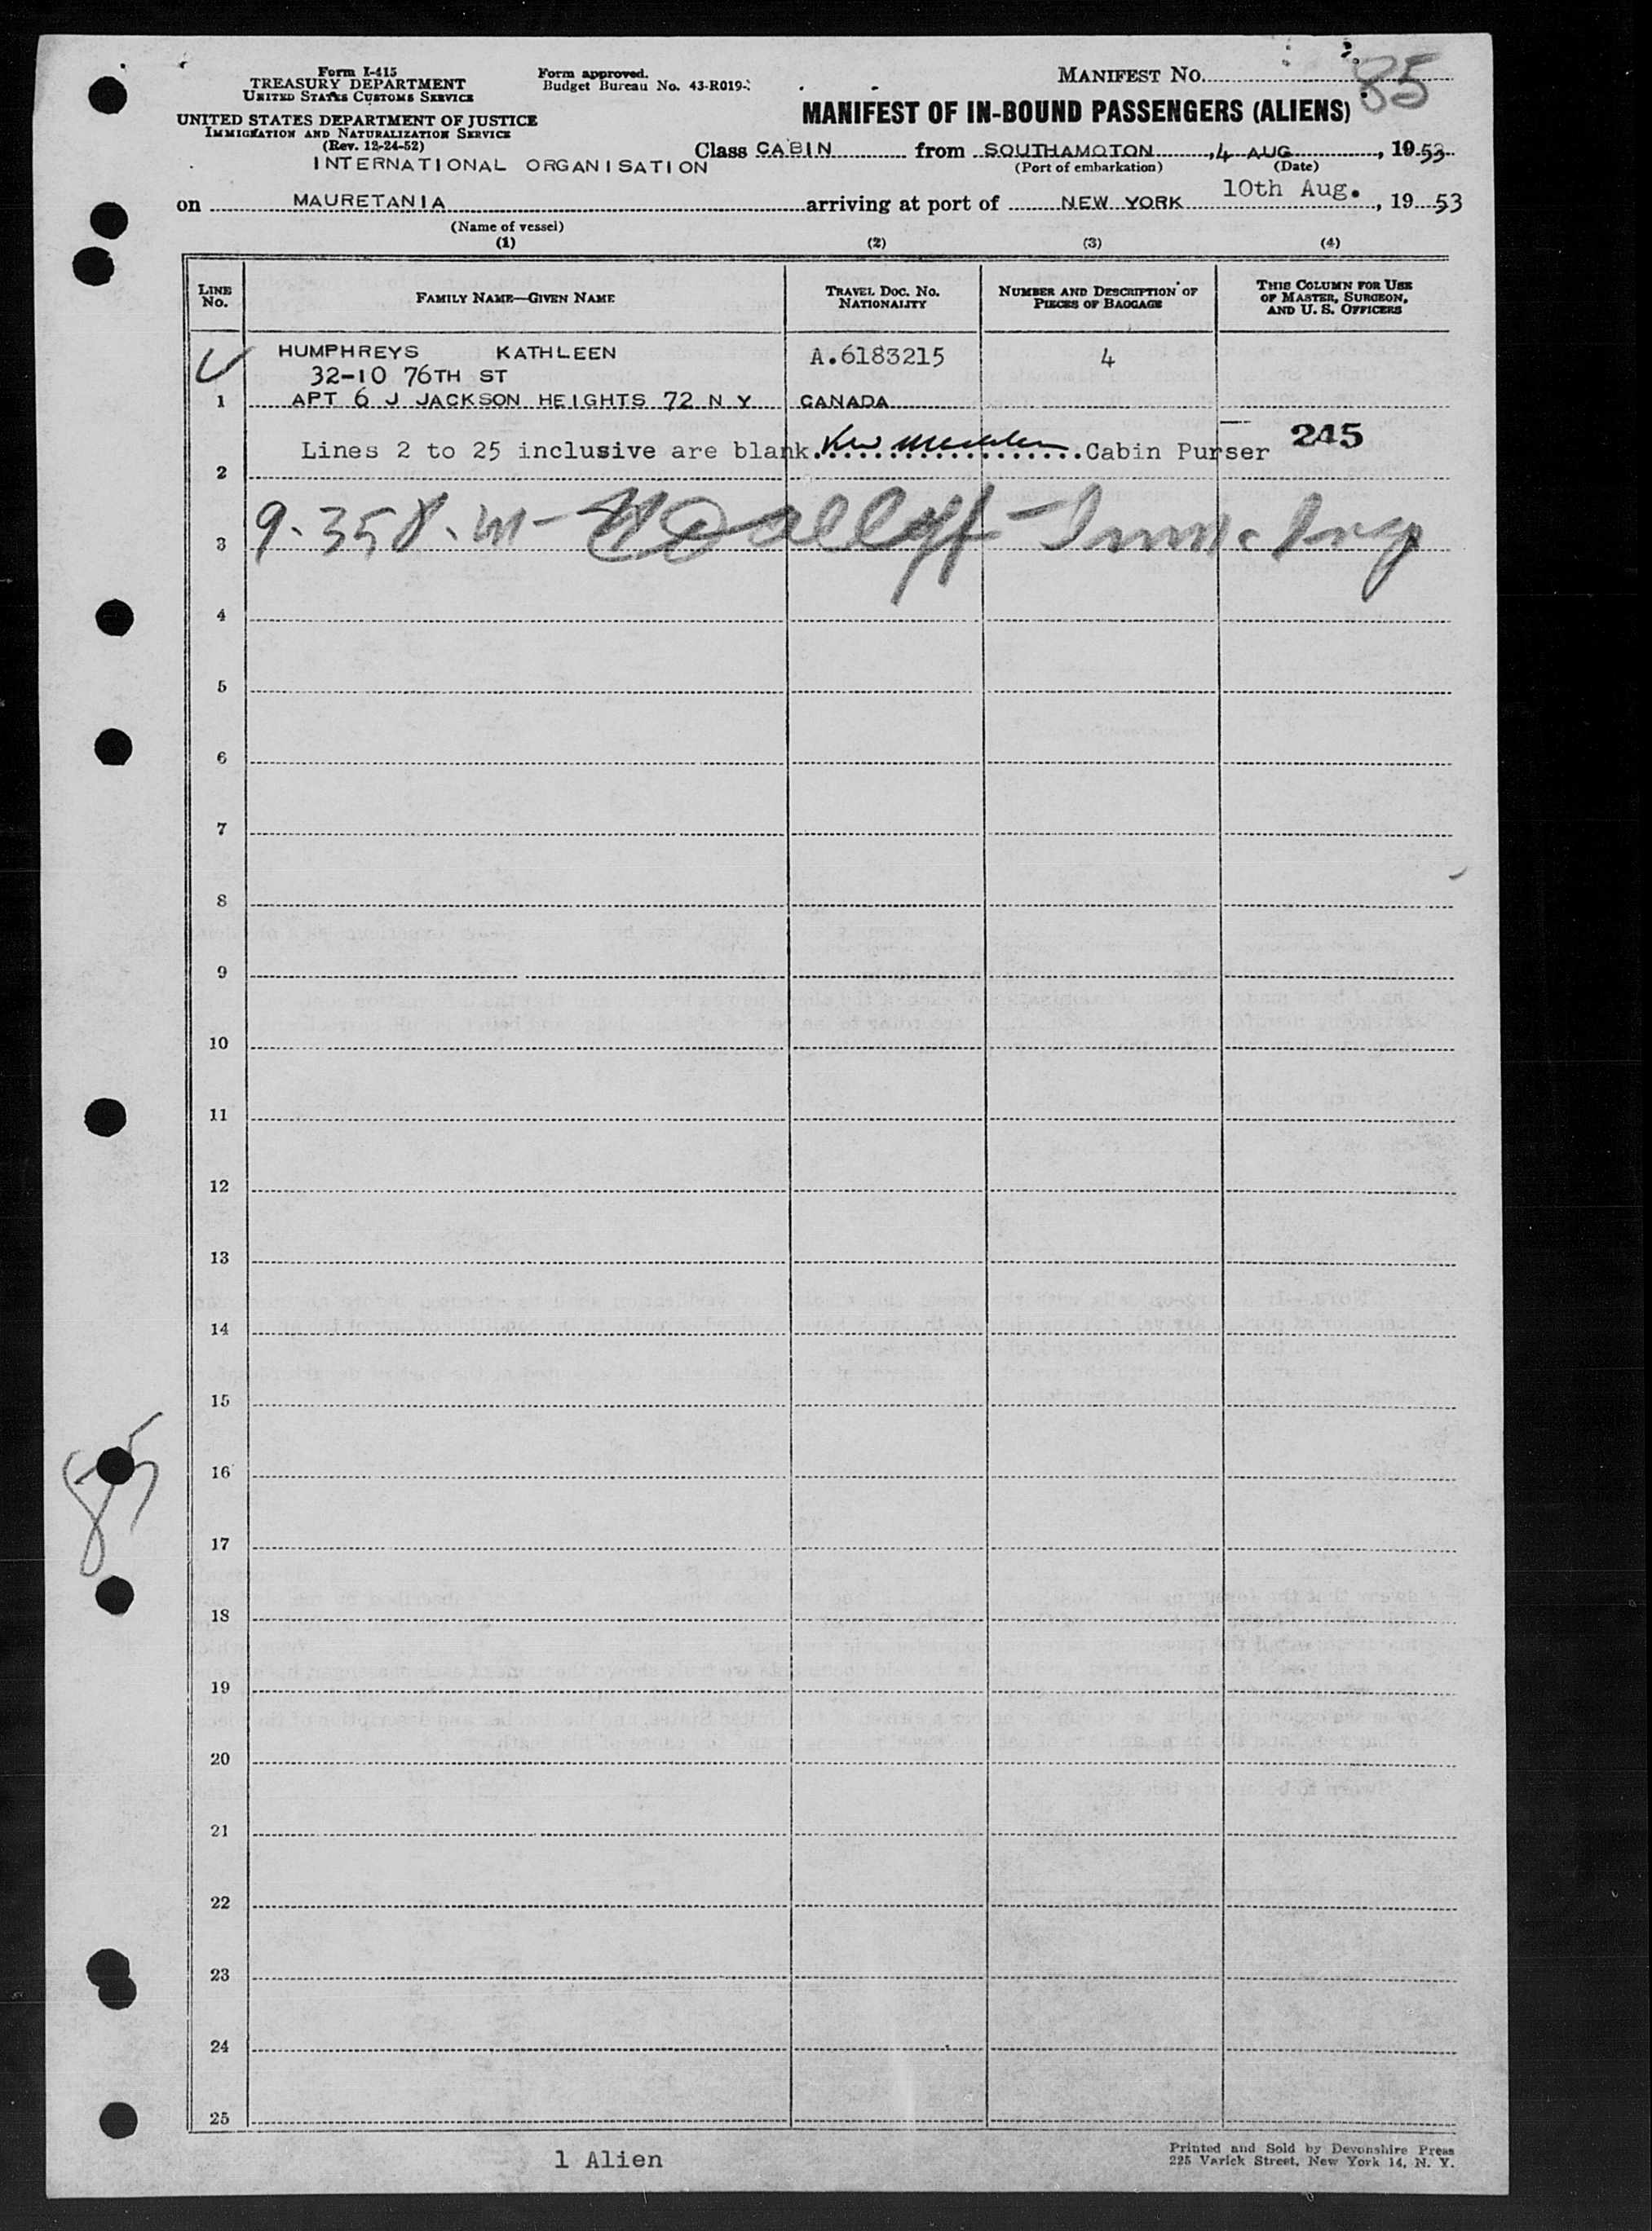 Form I-415
TREASURY DEPARTMENT
UNITED STATES CUSTOMS SERVICE
UNITED STATES DEPARTMENT OF JUSTICE
IMMIGRATION AND NATURALIZATION SERVICE
(Rev. 12-24-52)
Form approved.
Budget Bureau No. 43-R019-
MANIFEST No. 85
MANIFEST OF IN-BOUND PASSENGERS (ALIENS)
INTERNATIONAL ORGANISATION
Class CABIN from SOUTHAMOTON, 4 AUG, 1953
(Port of embarkation) (Date)
on MAURETANIA arriving at port of NEW YORK 10th Aug., 1953
(Name of vessel)
(1) (2) (3) (4)
LINE No. FAMILY NAME—GIVEN NAME TRAVEL DOC. NO. NATIONALITY NUMBER AND DESCRIPTION OF PIECES OF BAGGAGE THIS COLUMN FOR USE OF MASTER, SURGEON, AND U. S. OFFICERS
HUMPHREYS KATHLEEN A.6183215 4
32-10 76TH ST
1 APT 6 J JACKSON HEIGHTS 72 N Y CANADA
Lines 2 to 25 inclusive are blank. Cabin Purser 245
2
3
4
5
6
7
8
9
10
11
12
13
14
15
85
16
17
18
19
20
21
22
23
24
25
1 Alien
Printed and Sold by Devonshire Press
225 Varick Street, New York 14, N. Y.